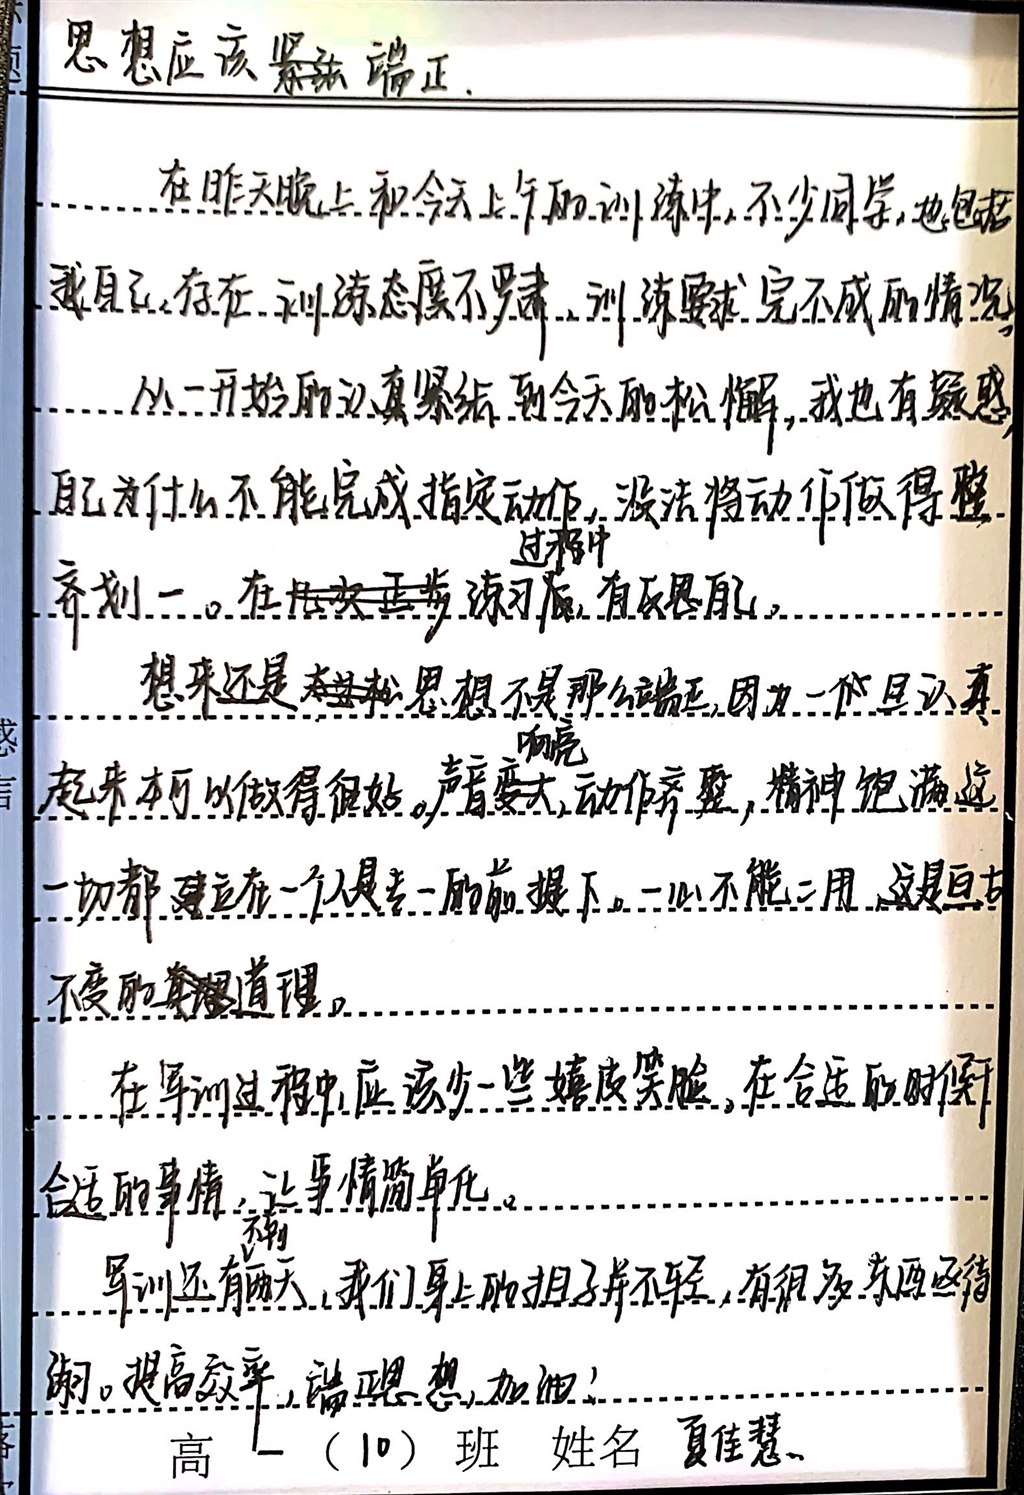 思想应该端正.
在昨天晚上和今天上午的训练中,不少同学,也包括
我自己,存在训练态度不严肃、训练要求完不成的情况。
从一开始的认真紧练到今天的松懈,我也有疑惑,
自己为什么不能完成指定动作,没法将动作做得整
齐划一。在练习过程中,有反思自己。
想来还是思想不是那么端正,因为一个旦认真
起来本可以做得很好。声音响亮,动作齐整,精神饱满这
一切都建立在一个人是专一的前提下。一心不能二用,这是亘古
不变的道理。
在军训过程中,应该少一些嬉皮笑脸,在合适的时候干
合适的事情,让事情简单化。
军训还有不到两天,我们身上的担子并不轻,有很多东西还待
练习。提高效率,端正思想,加油!
高一(10)班 姓名 夏佳慧
感言